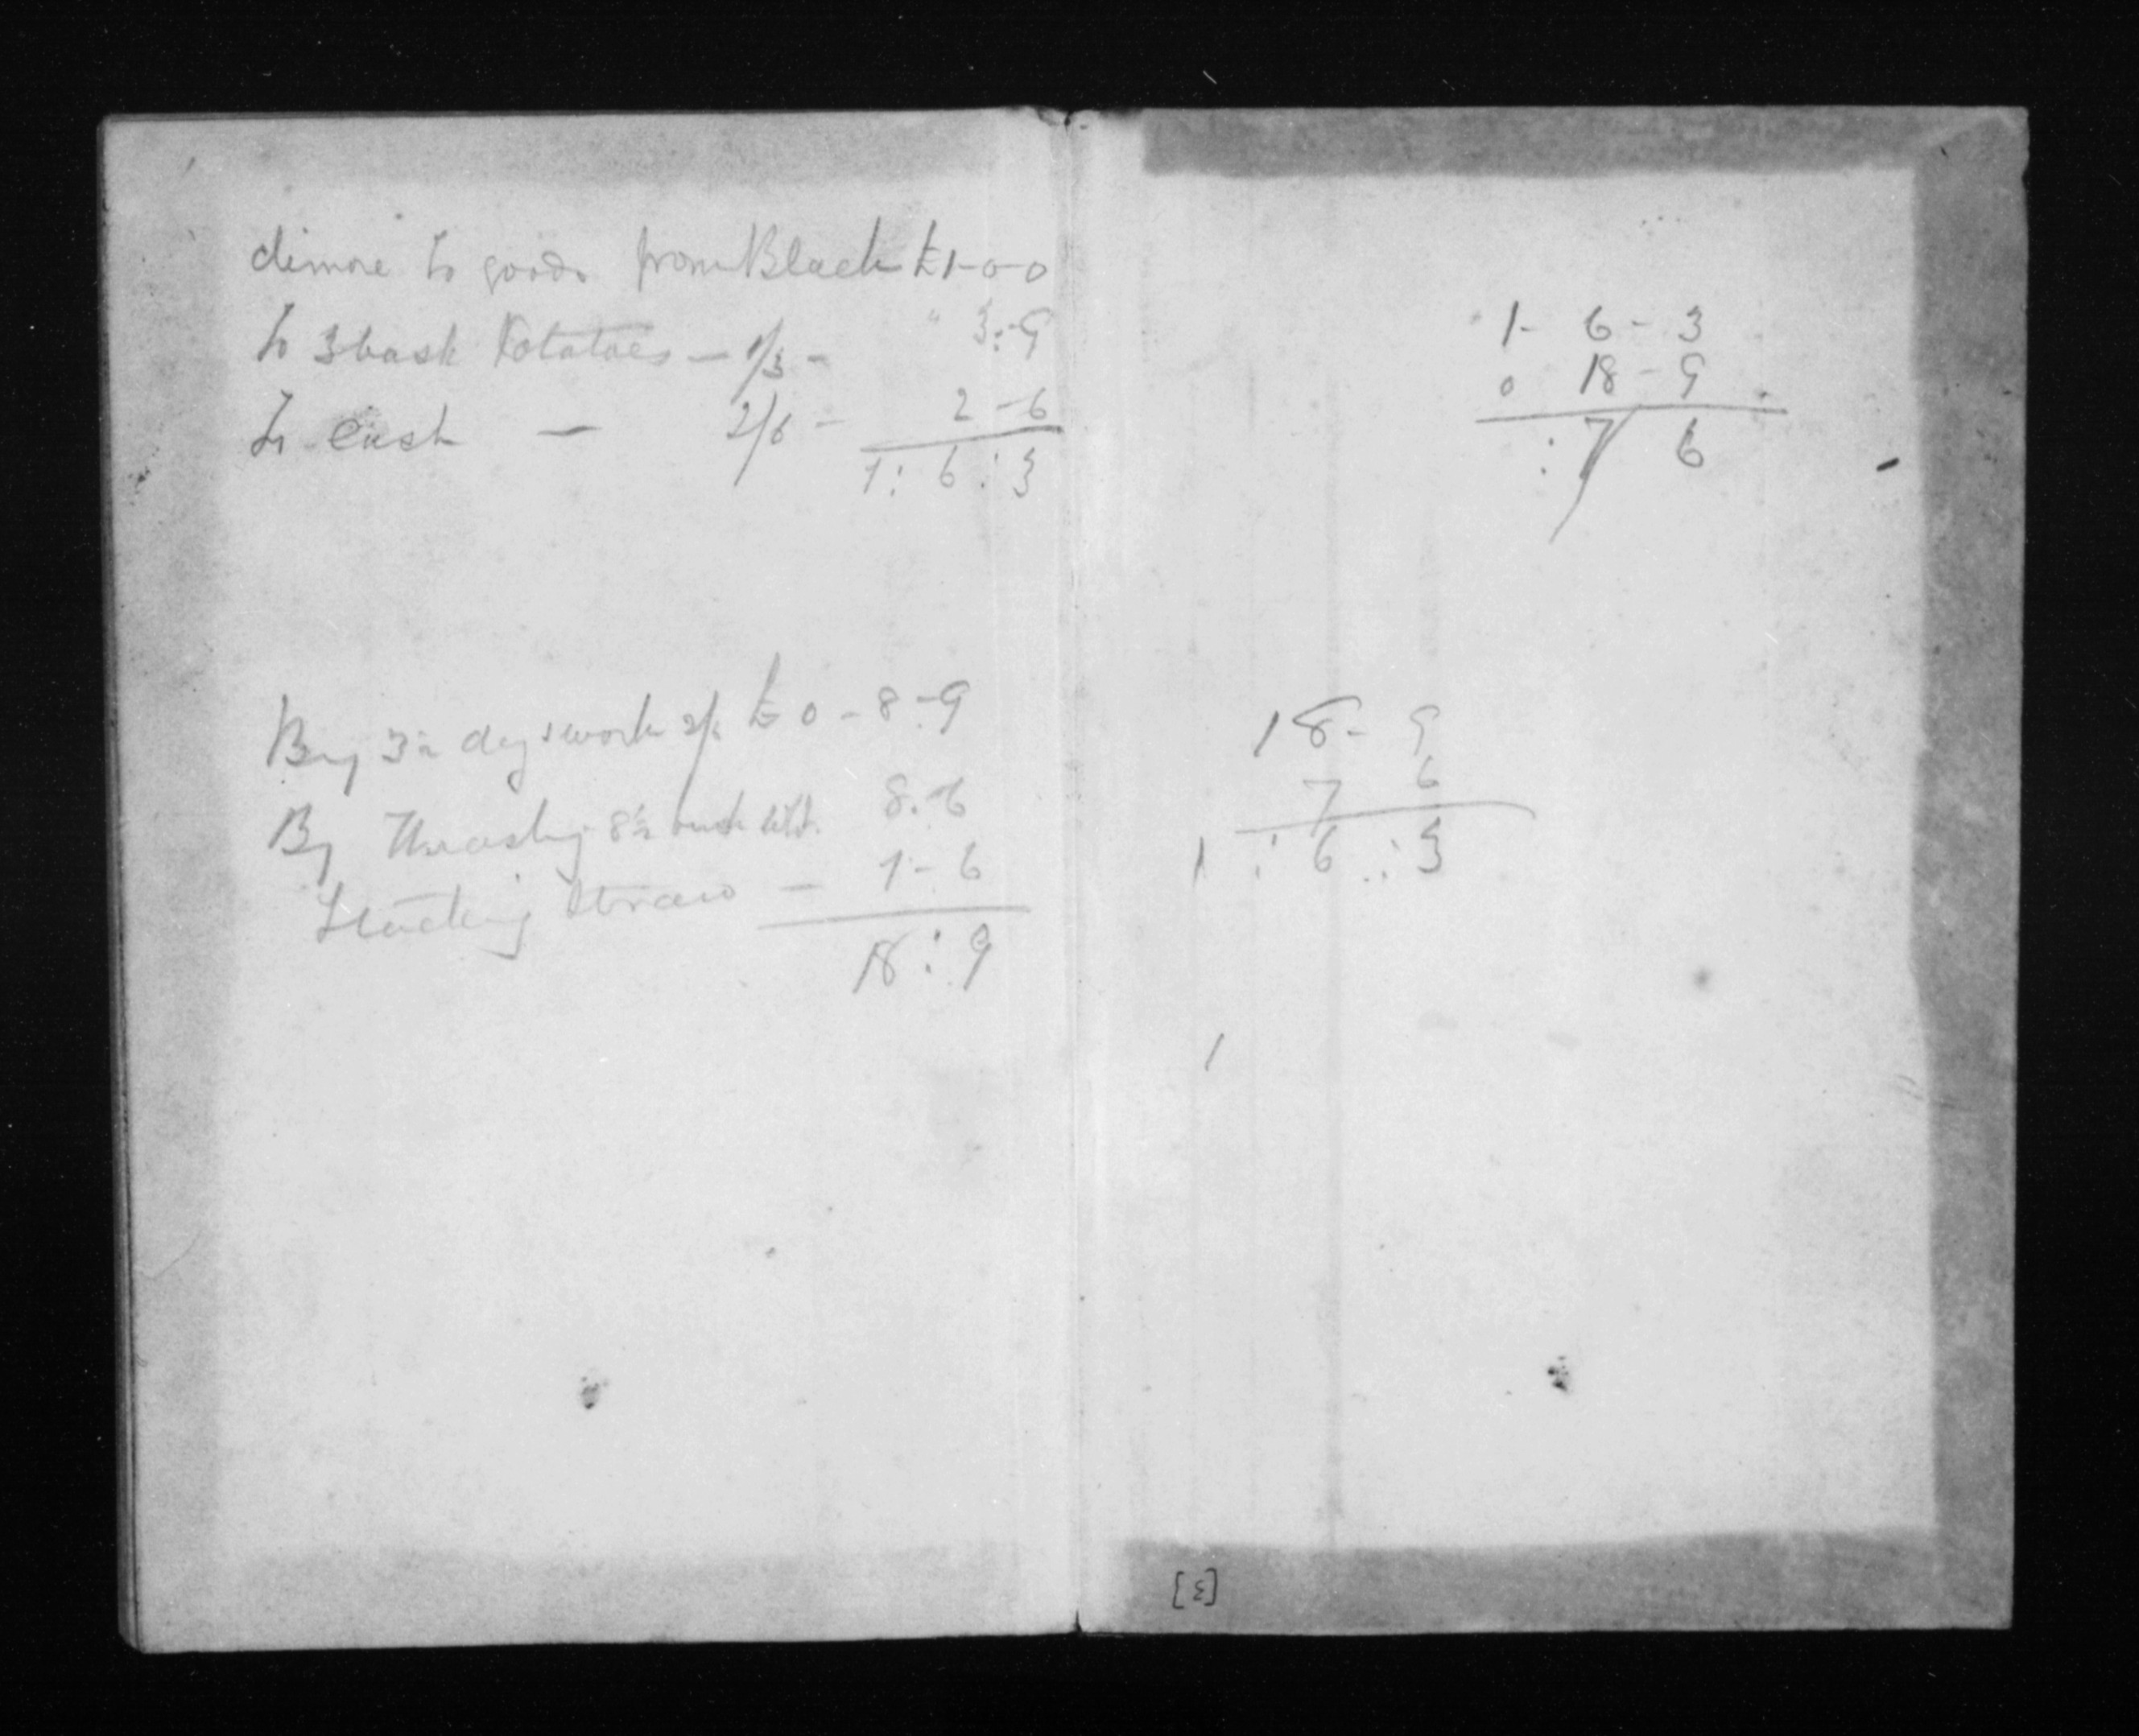 dimore to goods from Black £1-0-0
To 3 bush Potatoes - 1/3 - " 3:-9
To Cash - 2/6 - 2-6
1: 6: 3
By 3½ days work 2/6 £0-8-9
By Thrashing 8½ bush 8.-6
Stacking Straw - 1-6
18:9
1- 6- 3
0 18-9
: 7 6
18- 9
7 6
1 : 6 : 3
1
[3]